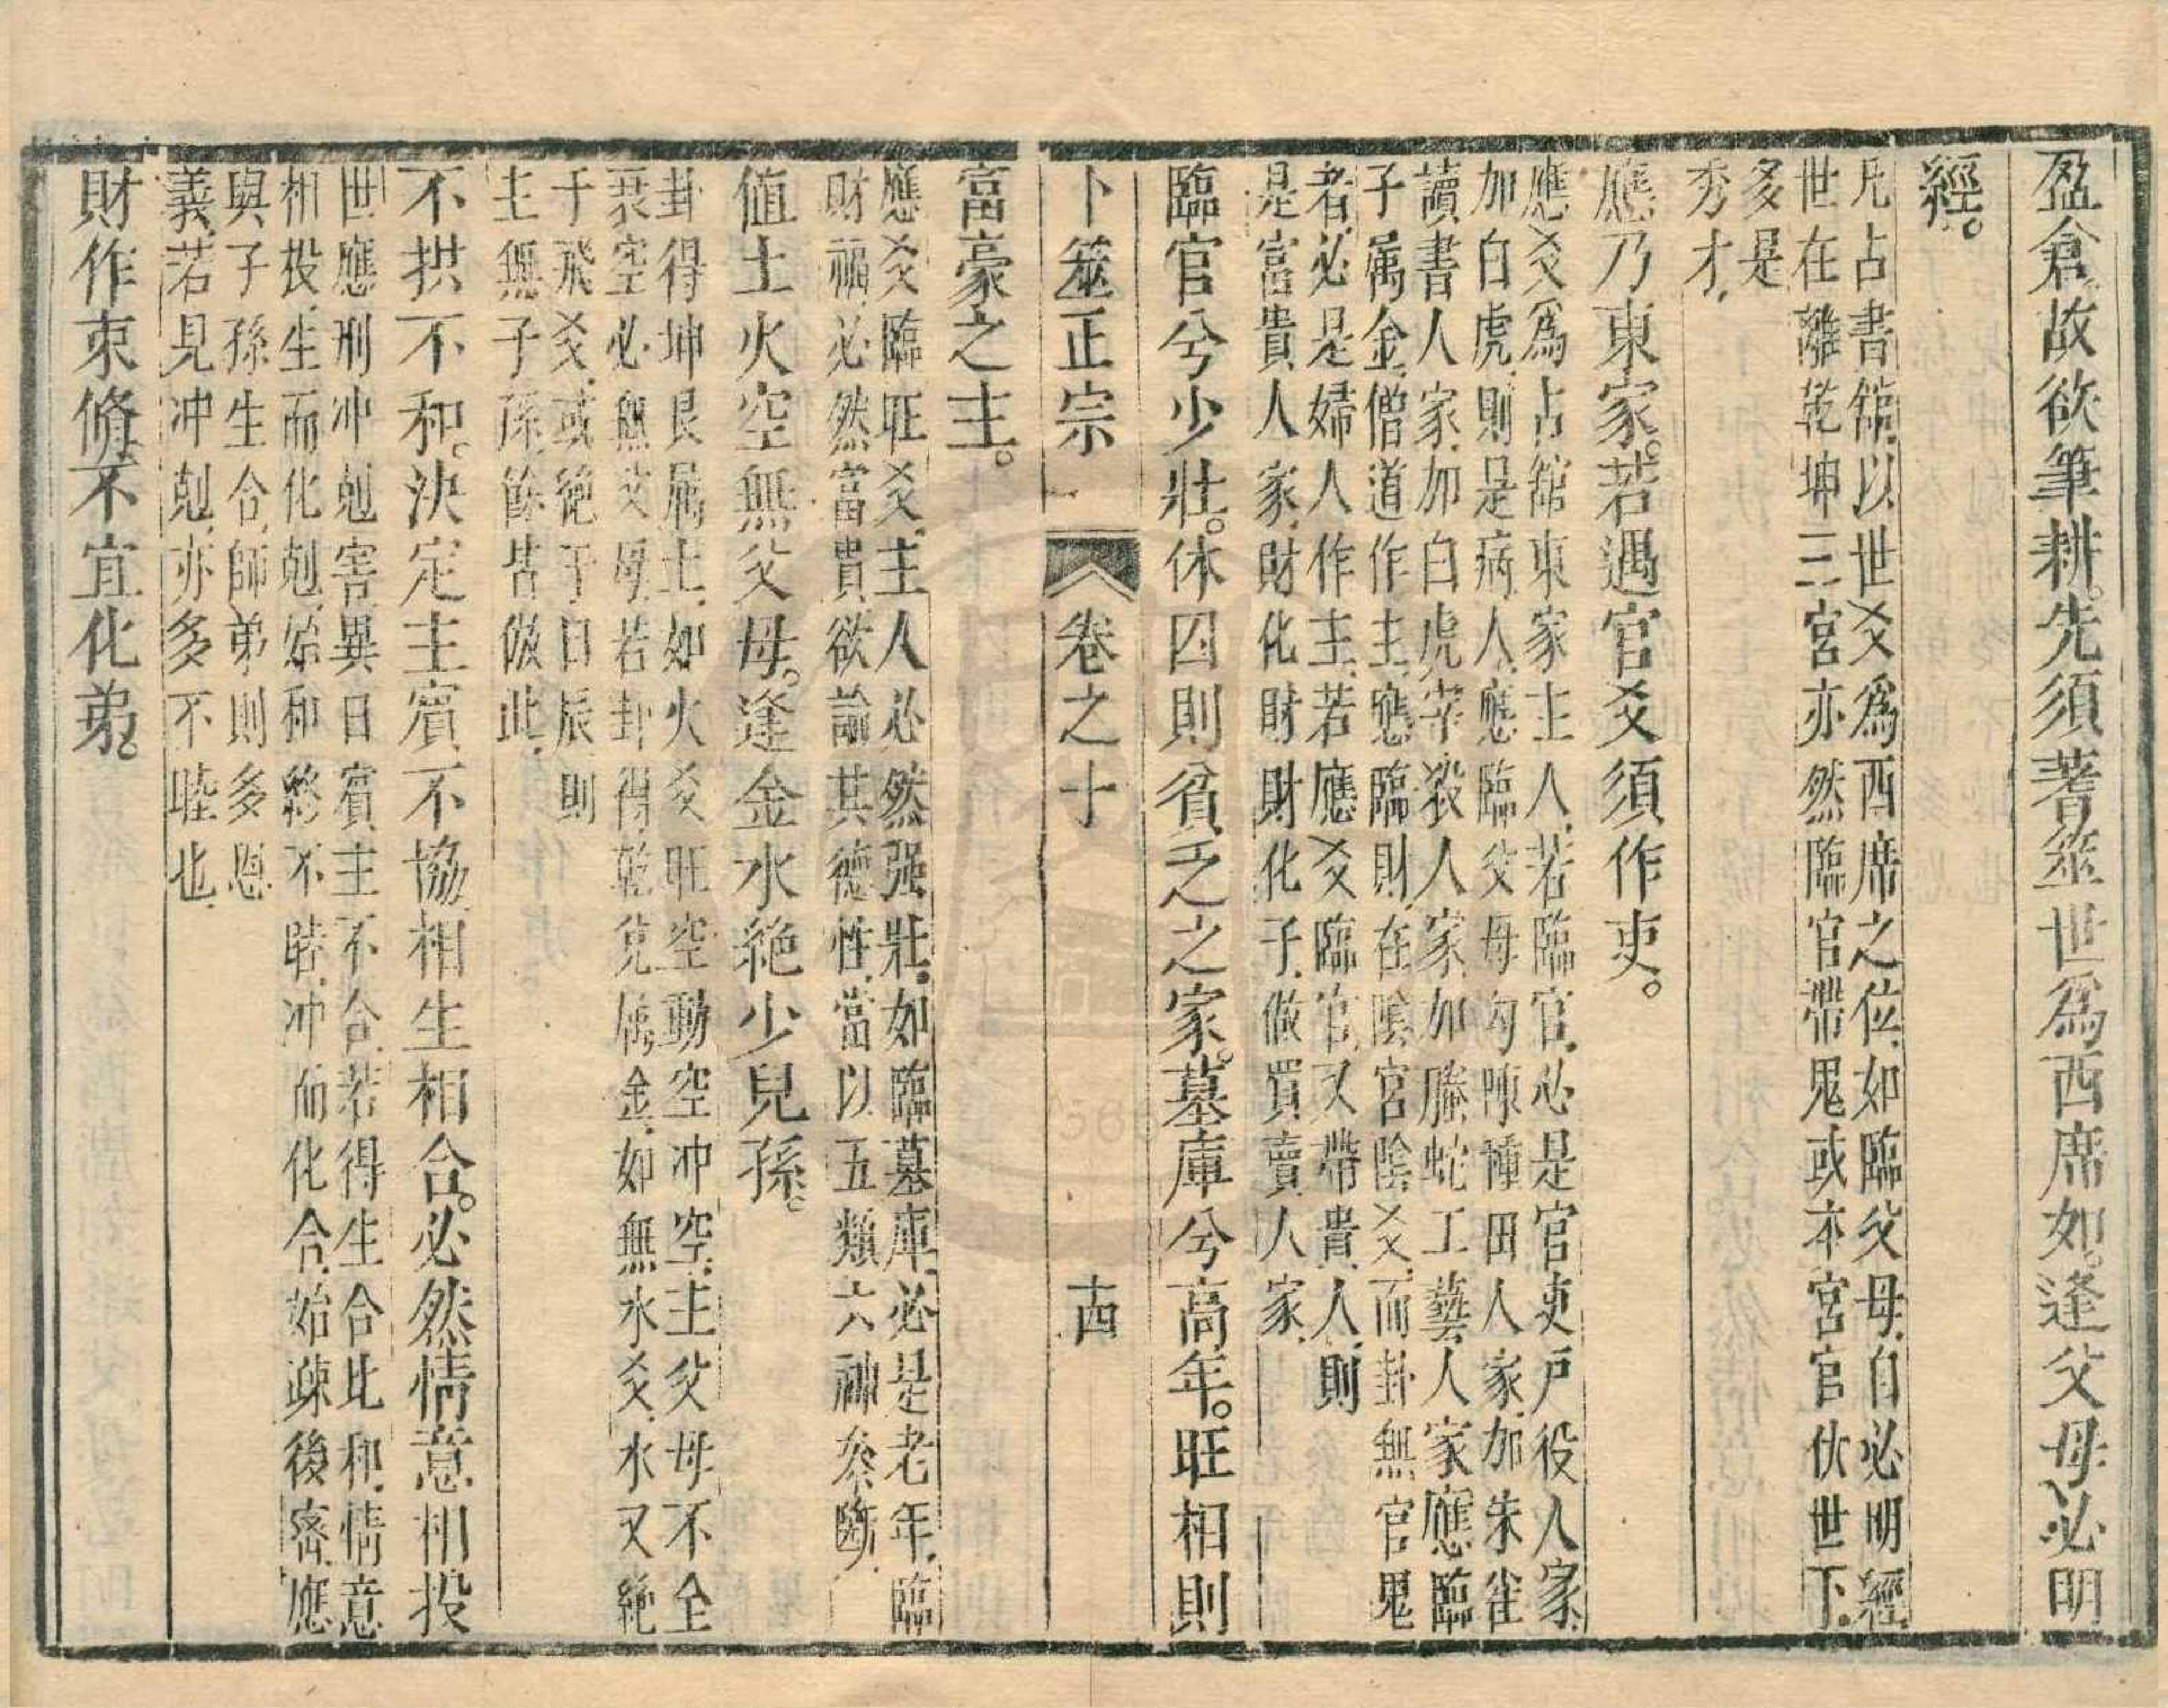 盈倉。故欲筆耕。先須蓍筮世爲西席。如逢父母。必明
經。
凡占書舘。以世爻爲西席之位。如臨父母。自必明經。
世在離乾坤三宮亦然。臨官帶鬼或本宮官伏世下。
多是
秀才。
應乃東家。若遇官爻須作吏。
應爻爲占舘東家主人。若臨官。必是官吏戶役人家。
加白虎。則是病人。應臨父母勾陳。種田人家。加朱雀
讀書人家。加白虎宰殺人家。加螣蛇工藝人家。應臨
子属金。僧道作主。應臨財。在陰宮陰爻。而卦無官鬼
者。必是婦人作主。若應爻臨官。又帶貴人。則
是富貴人家。財化財。財化子。做買賣人家。
臨官兮少壯。休囚則貧乏之家。墓庫兮高年。旺相則
卜筮正宗
卷之十
十四
富豪之主。
應爻臨旺爻。主人必然强壯。如臨墓庫。必是老年。臨
財福必然富貴。欲論其德性。當以五類六神叅斷。
値土火空無父母。逢金水絶少兒孫。
卦得坤艮属土。如火爻旺空動空冲空。主父母不全
衰空必無父母。若卦得乾兌属金。如無水爻。水又絶
于飛爻。或絶于日辰則
主無子孫。餘皆倣此。
不拱不和。決定主賓不協。相生相合。必然情意相投
世應刑冲尅害。異日賓主不合。若得生合比和。情意
相投。生而化尅。始和終不睦。冲而化合。始疎後密。應
與子孫生合。師弟則多恩
義。若見冲尅。亦多不睦也。
財作束脩。不宜化弟。